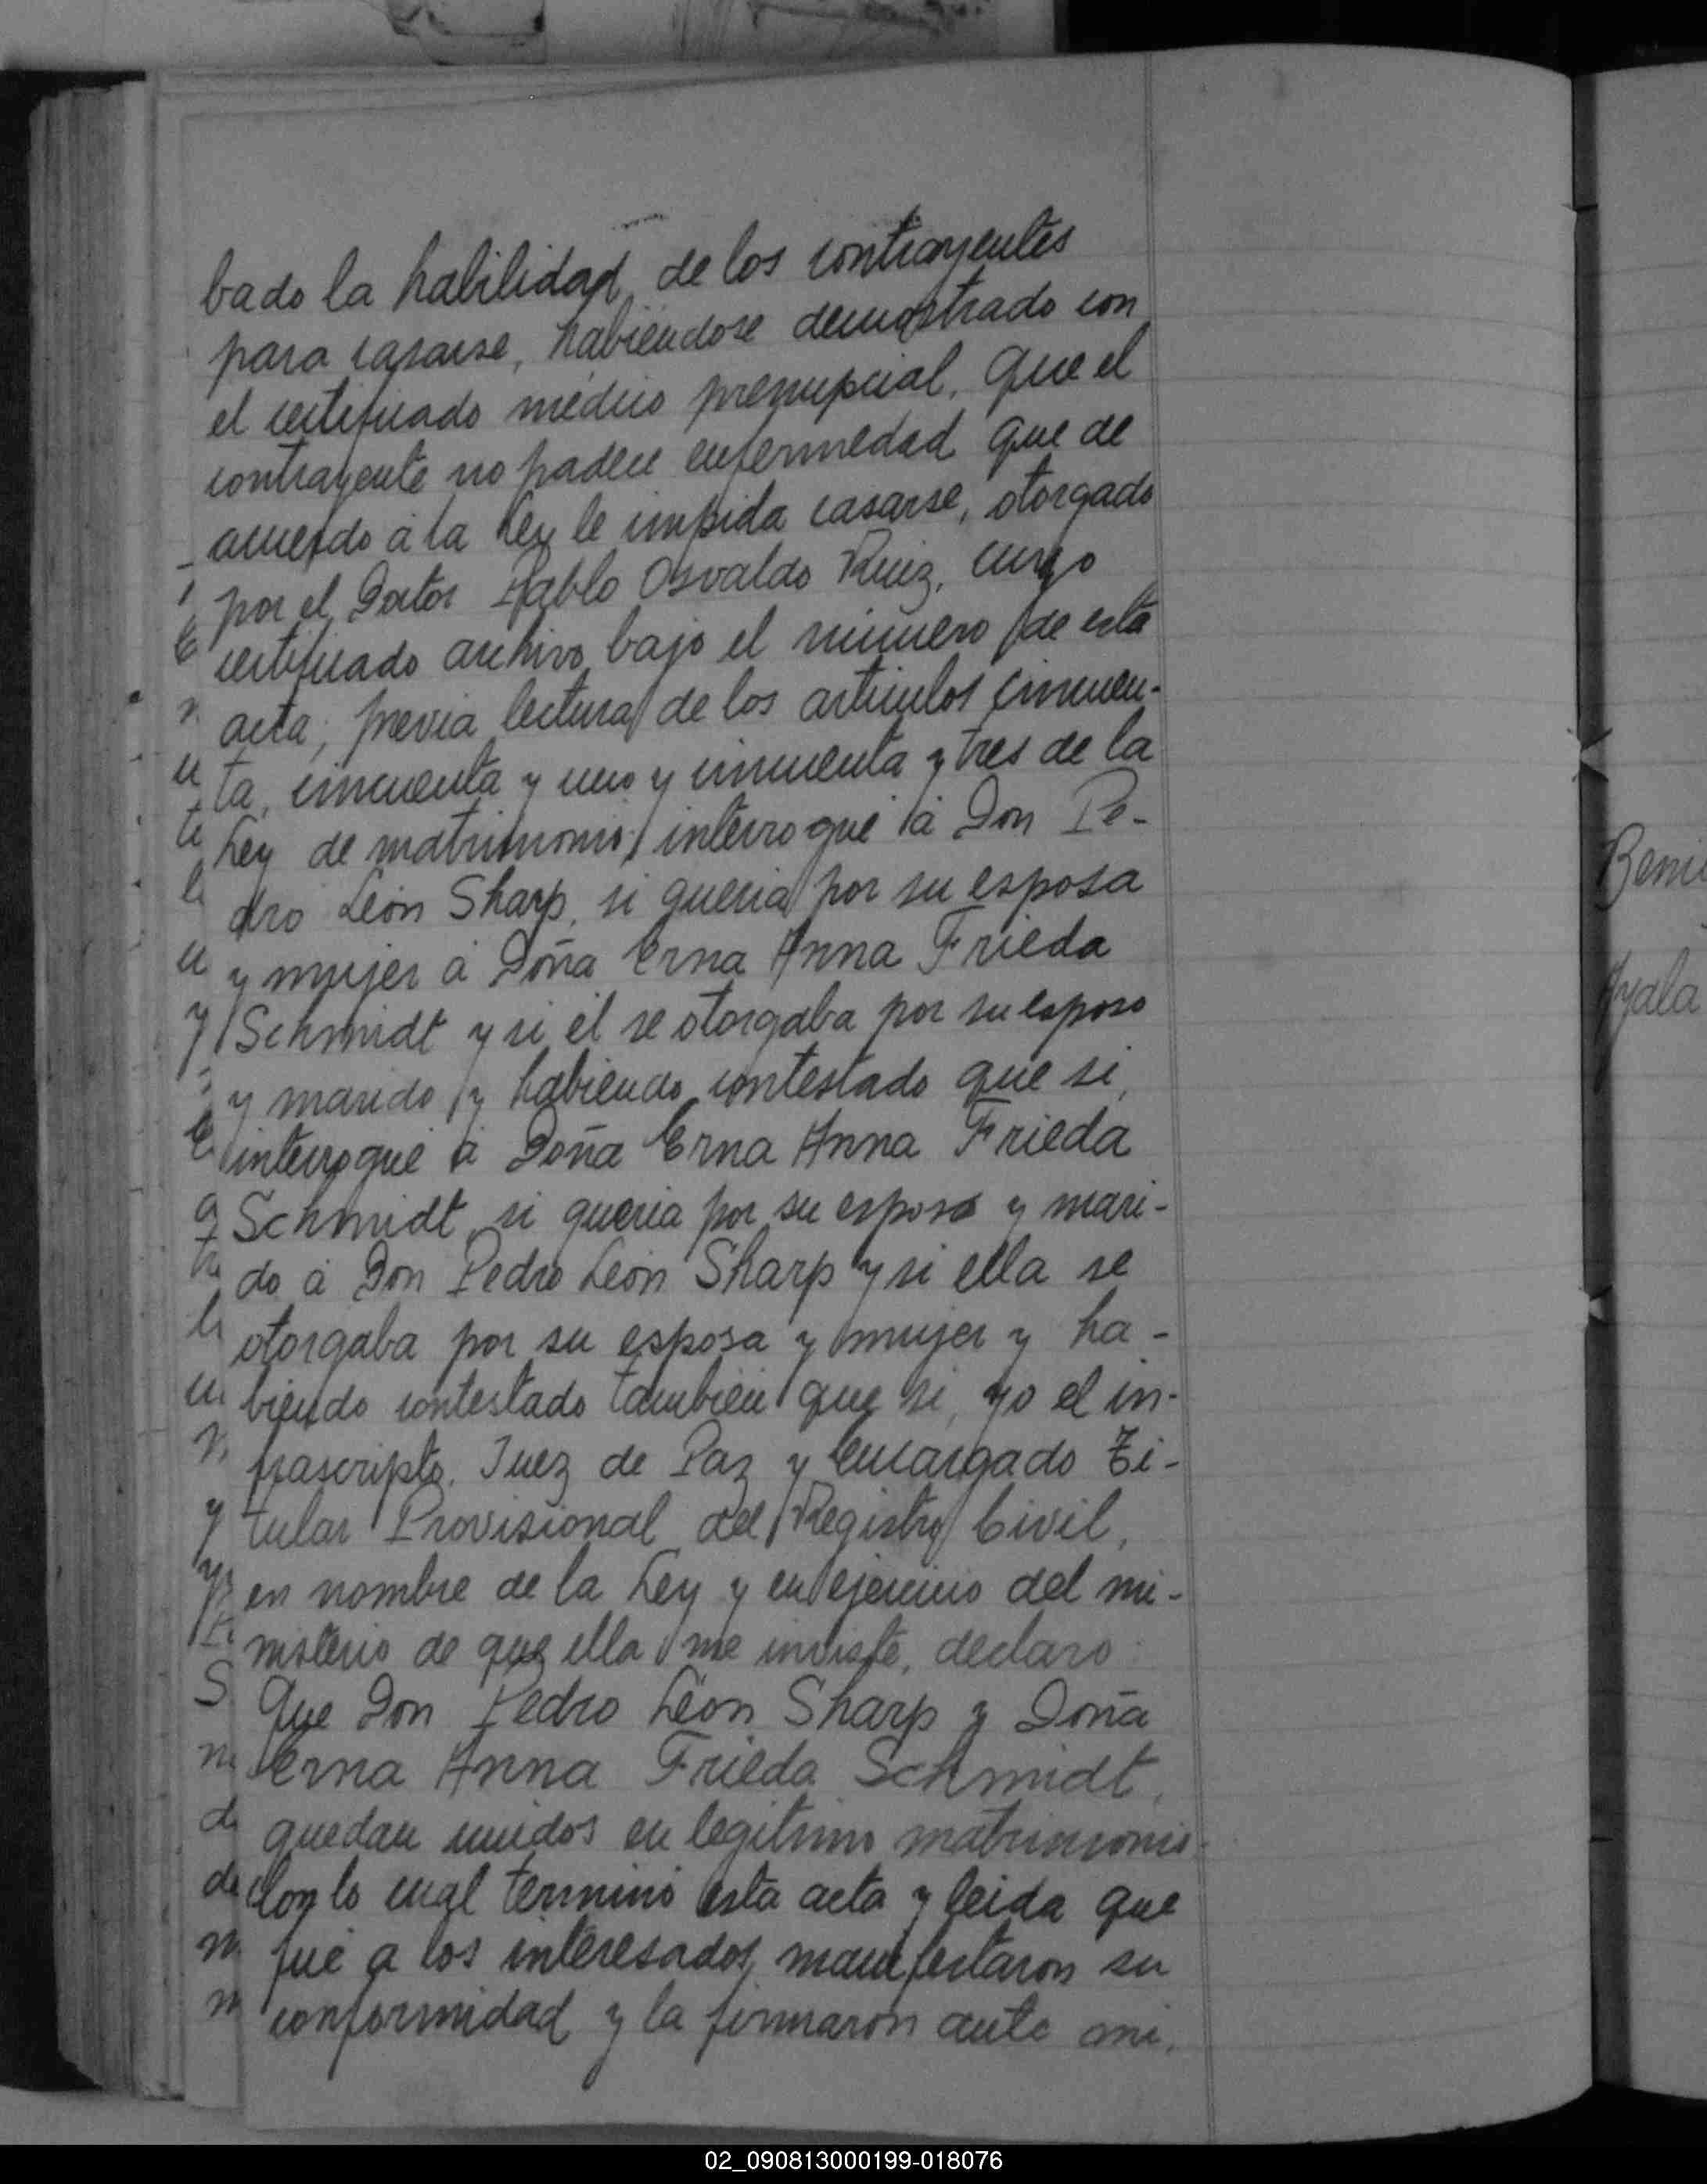 bado la habilidad de los contrayentes
para casarse, habiéndose demostrado con
el certificado médico prenupcial, que el
contrayente no padece enfermedad que de
acuerdo á la Ley le impida casarse, otorgado
por el Doctor Pablo Osvaldo Ruiz, cuyo
certificado archivo bajo el número de esta
acta; previa lectura de los artículos cincuen-
ta, cincuenta y uno y cincuenta y tres de la
Ley de matrimonio, interrogué á Don Pe-
dro León Sharp, si quería por su esposa
y mujer á Doña Erna Anna Frieda
Schmidt y si él se otorgaba por su esposo
y marido y habiendo contestado que si,
interrogué á Doña Erna Anna Frieda
Schmidt, si quería por su esposo y mari-
do á Don Pedro León Sharp y si ella se
otorgaba por su esposa y mujer y ha-
biendo contestado también que si, yo el in-
frascripto, Juez de Paz y Encargado Ti-
tular Provisional del Registro Civil,
en nombre de la Ley y en ejercicio del mi-
nisterio de que ella me inviste, declaro:
Que Don Pedro León Sharp y Doña
Erna Anna Frieda Schmidt,
quedan unidos en legítimo matrimonio.
Con lo cual terminó esta acta y leida que
fué a los interesados, manifestaron su
conformidad y la firmaron ante mi,
Ayala
02_090813000199-018076